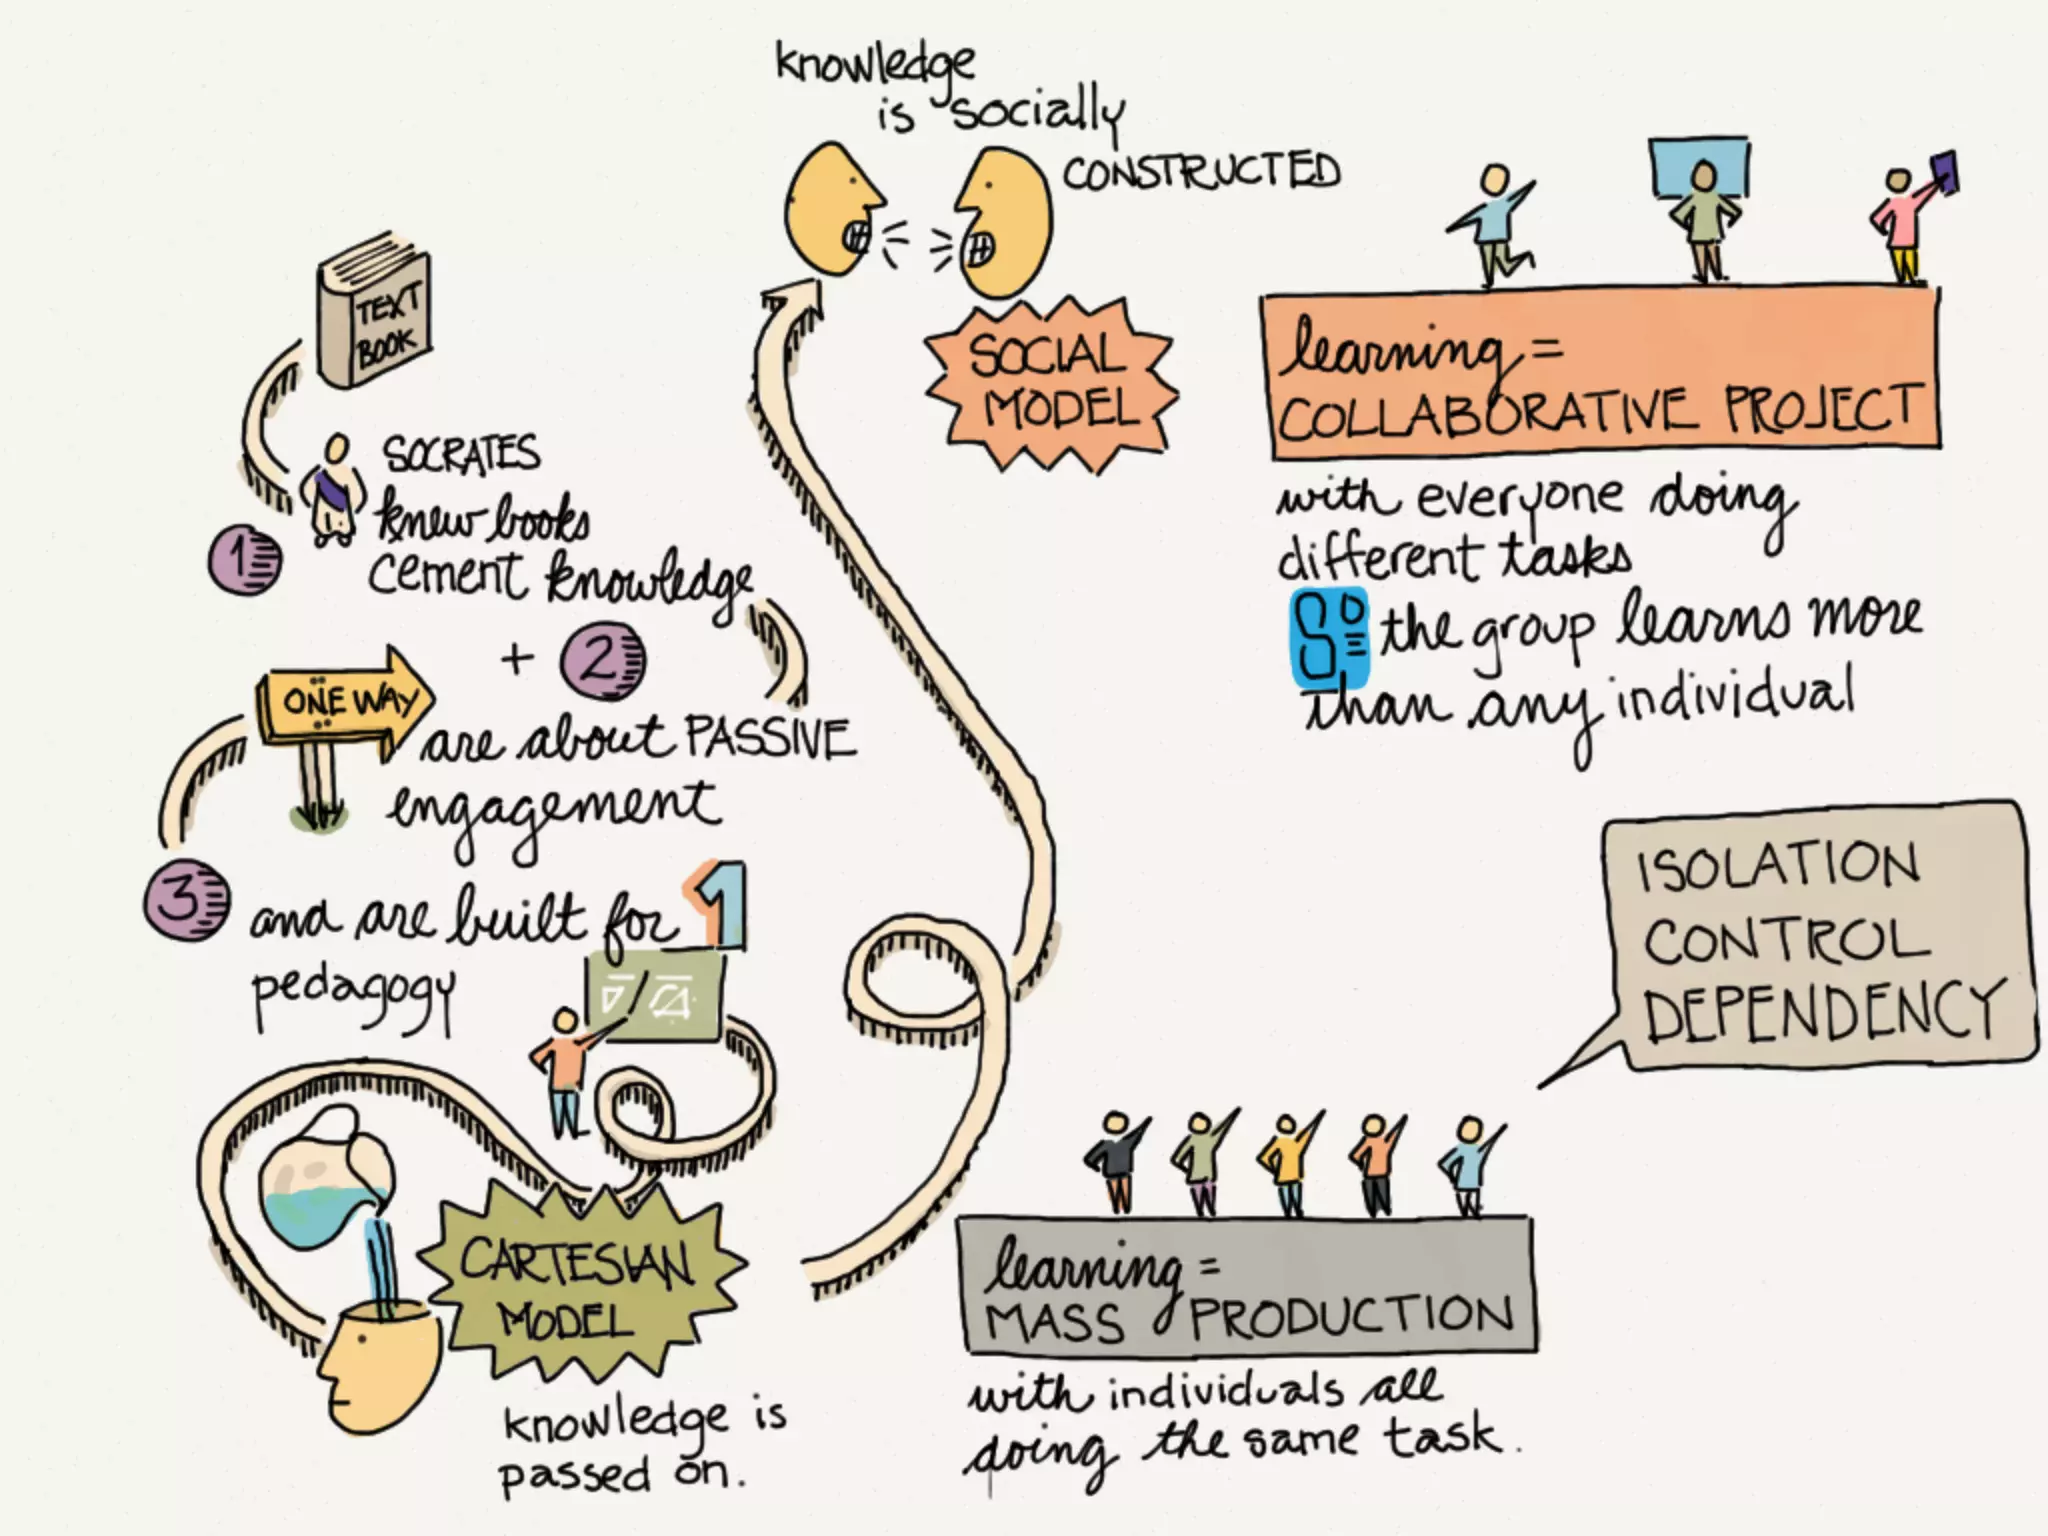 TEXT
BOOK
1
SOCRATES
knew books
cement knowledge
+ 2
ONE WAY
are about PASSIVE
engagement
3
and are built for 1
pedagogy
CARTESIAN
MODEL
knowledge is
passed on.
knowledge
is socially
CONSTRUCTED
SOCIAL
MODEL
learning =
COLLABORATIVE PROJECT
with everyone doing
different tasks
So the group learns more
than any individual
ISOLATION
CONTROL
DEPENDENCY
learning =
MASS PRODUCTION
with individuals all
doing the same task.